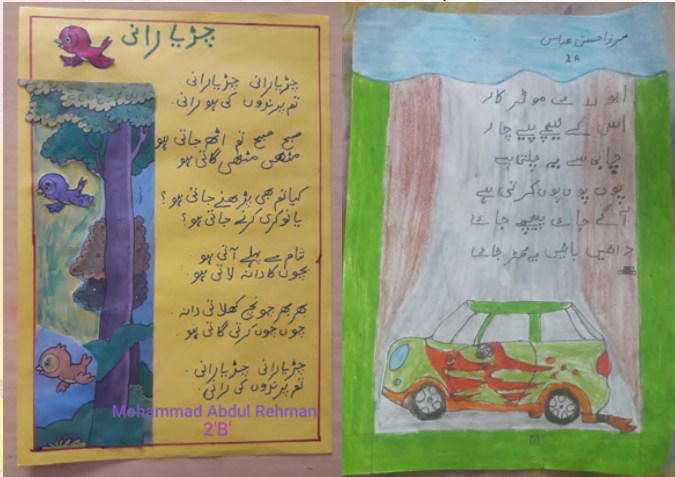 چڑیا رانی
چڑیا رانی چڑیا رانی
تم پرندوں کی ہو رانی
صبح صبح تم اٹھ جاتی ہو
میٹھی میٹھی گاتی ہو
کیا تم بھی پڑھنے جاتی ہو؟
یا نوکری کرنے جاتی ہو؟
شام سے پہلے آتی ہو
بچوں کا دانہ لاتی ہو
بھر بھر چونچ کھلاتی دانہ
چوں چوں کرتی گاتی ہو
چڑیا رانی چڑیا رانی
تم پرندوں کی رانی
Mohammad Abdul Rehman
2'B'
مرزا حسن عباس
2A
ابو لائے موٹر کار
اس کے نیچے پہیے چار
چابی سے یہ چلتی ہے
پوں پوں پوں پوں کرتی ہے
آگے جائے پیچھے جائے
دائیں بائیں یہ مڑ جائے